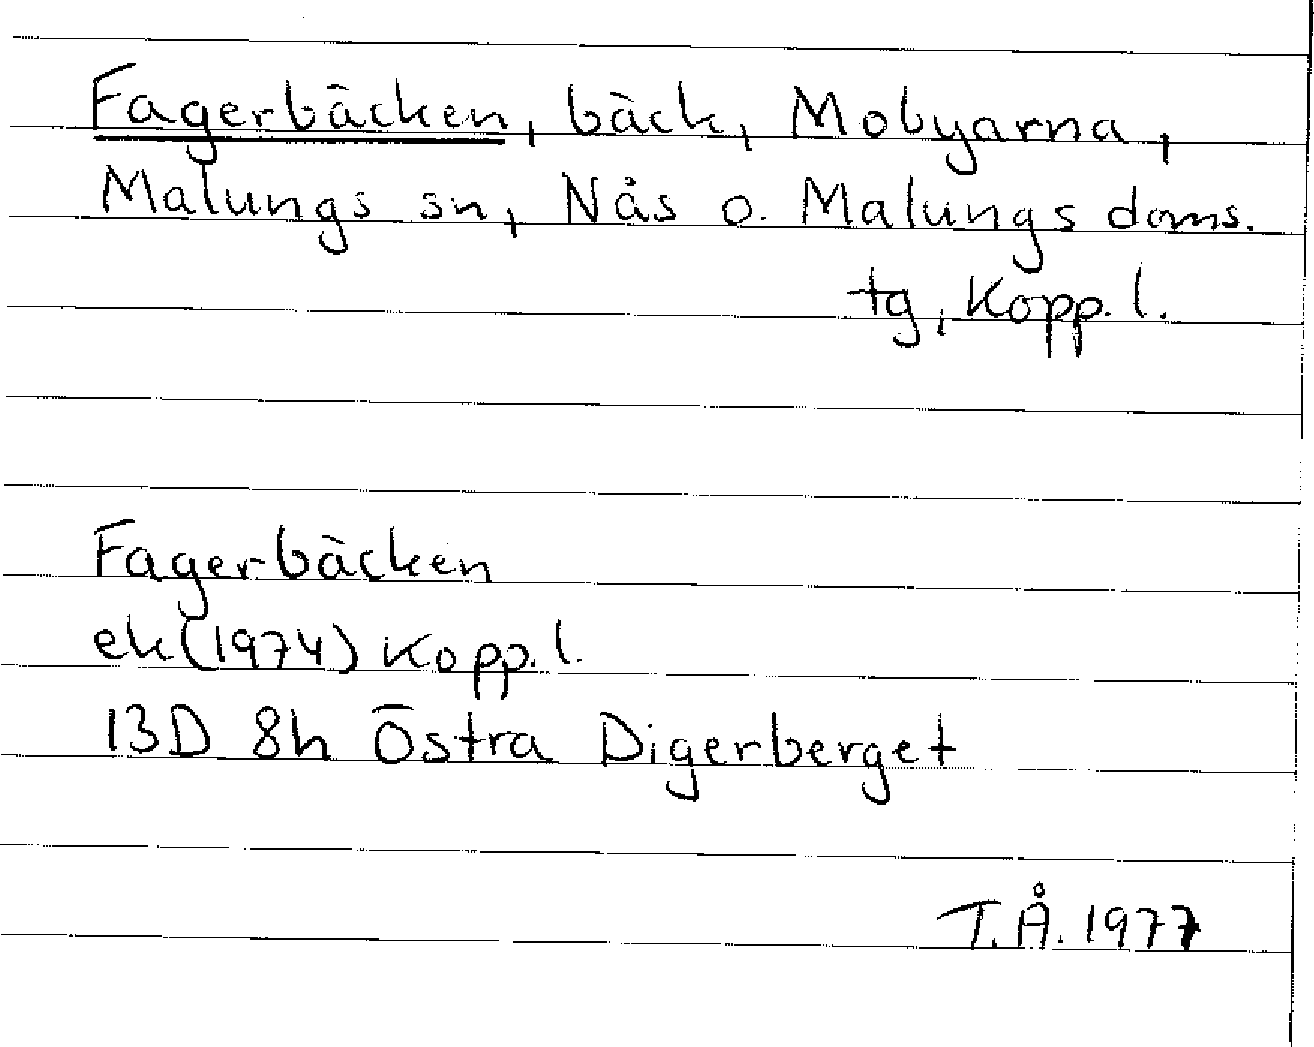 Fagerbäcken, bäck, Mobyarna,
Malungs sn, Nås o. Malungs doms.
tg, Kopp. l.
Fagerbäcken
ek (1974) Kopp. l.
13D 8h Östra Digerberget
T.Å. 1977